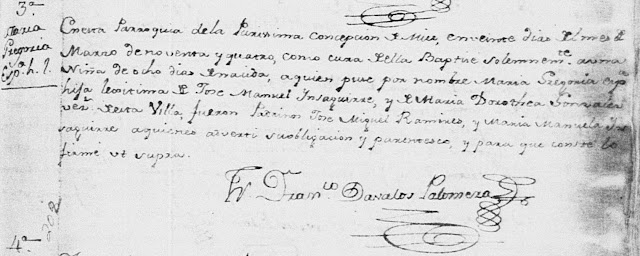 3ª
Maria
Gregoria
esp. h. l.
En esta Parroquia de la Purisima Concepcion de Mier, en veinte dias del mes de
Marzo de noventa y quatro, como cura de ella Baptice solemnem.te a una
Niña de ocho dias de nacida, a quien puse por nombre Maria Gregoria esp.
hija legitima de Jose Manuel Insaguirre, y de Maria Dorothea Gonzalez
vez.s de esta Villa, fueron Padrinos Jose Miguel Ramirez, y Maria Manuela In
saguirre a quienes adverti su obligacion y parentesco, y para que conste lo
firmé ut supra.
Fran.co Davalos Palomera
208
4ª